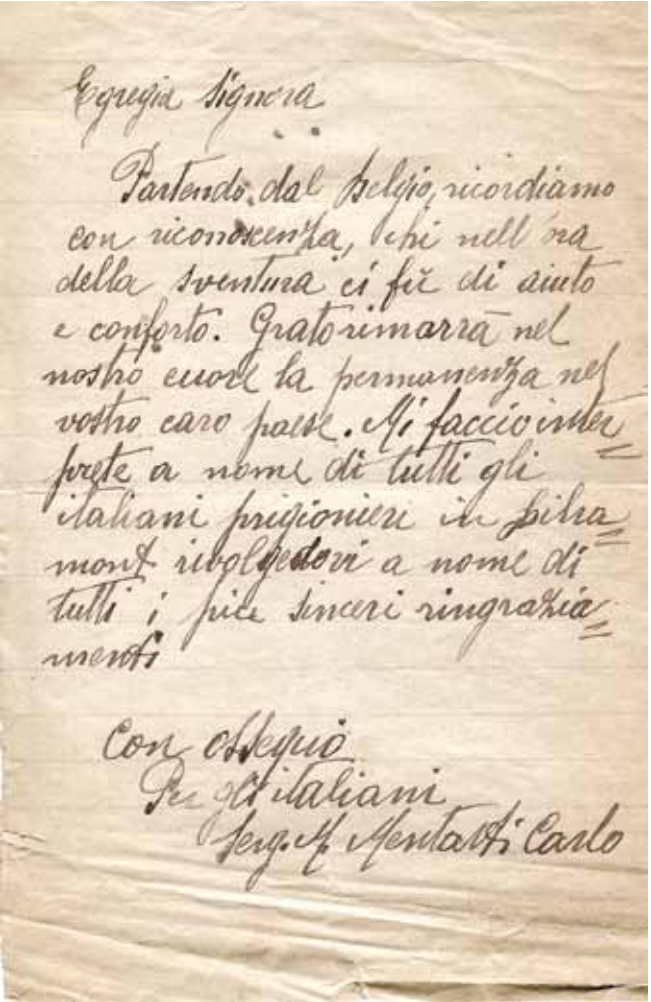 Egregia Signora
Partendo dal Belgio, ricordiamo
con riconoscenza, chi nell'ora
della sventura ci fù di aiuto
e conforto. Grato rimarrà nel
nostro cuore la permanenza nel
vostro caro paese. Mi faccio inter=
prete a nome di tutti gli
italiani prigionieri in Biha=
mont rivolgedovi a nome di
tutti i più sinceri ringrazia=
menti
Con ossequio
Per gli italiani
Serg. M. Carlo